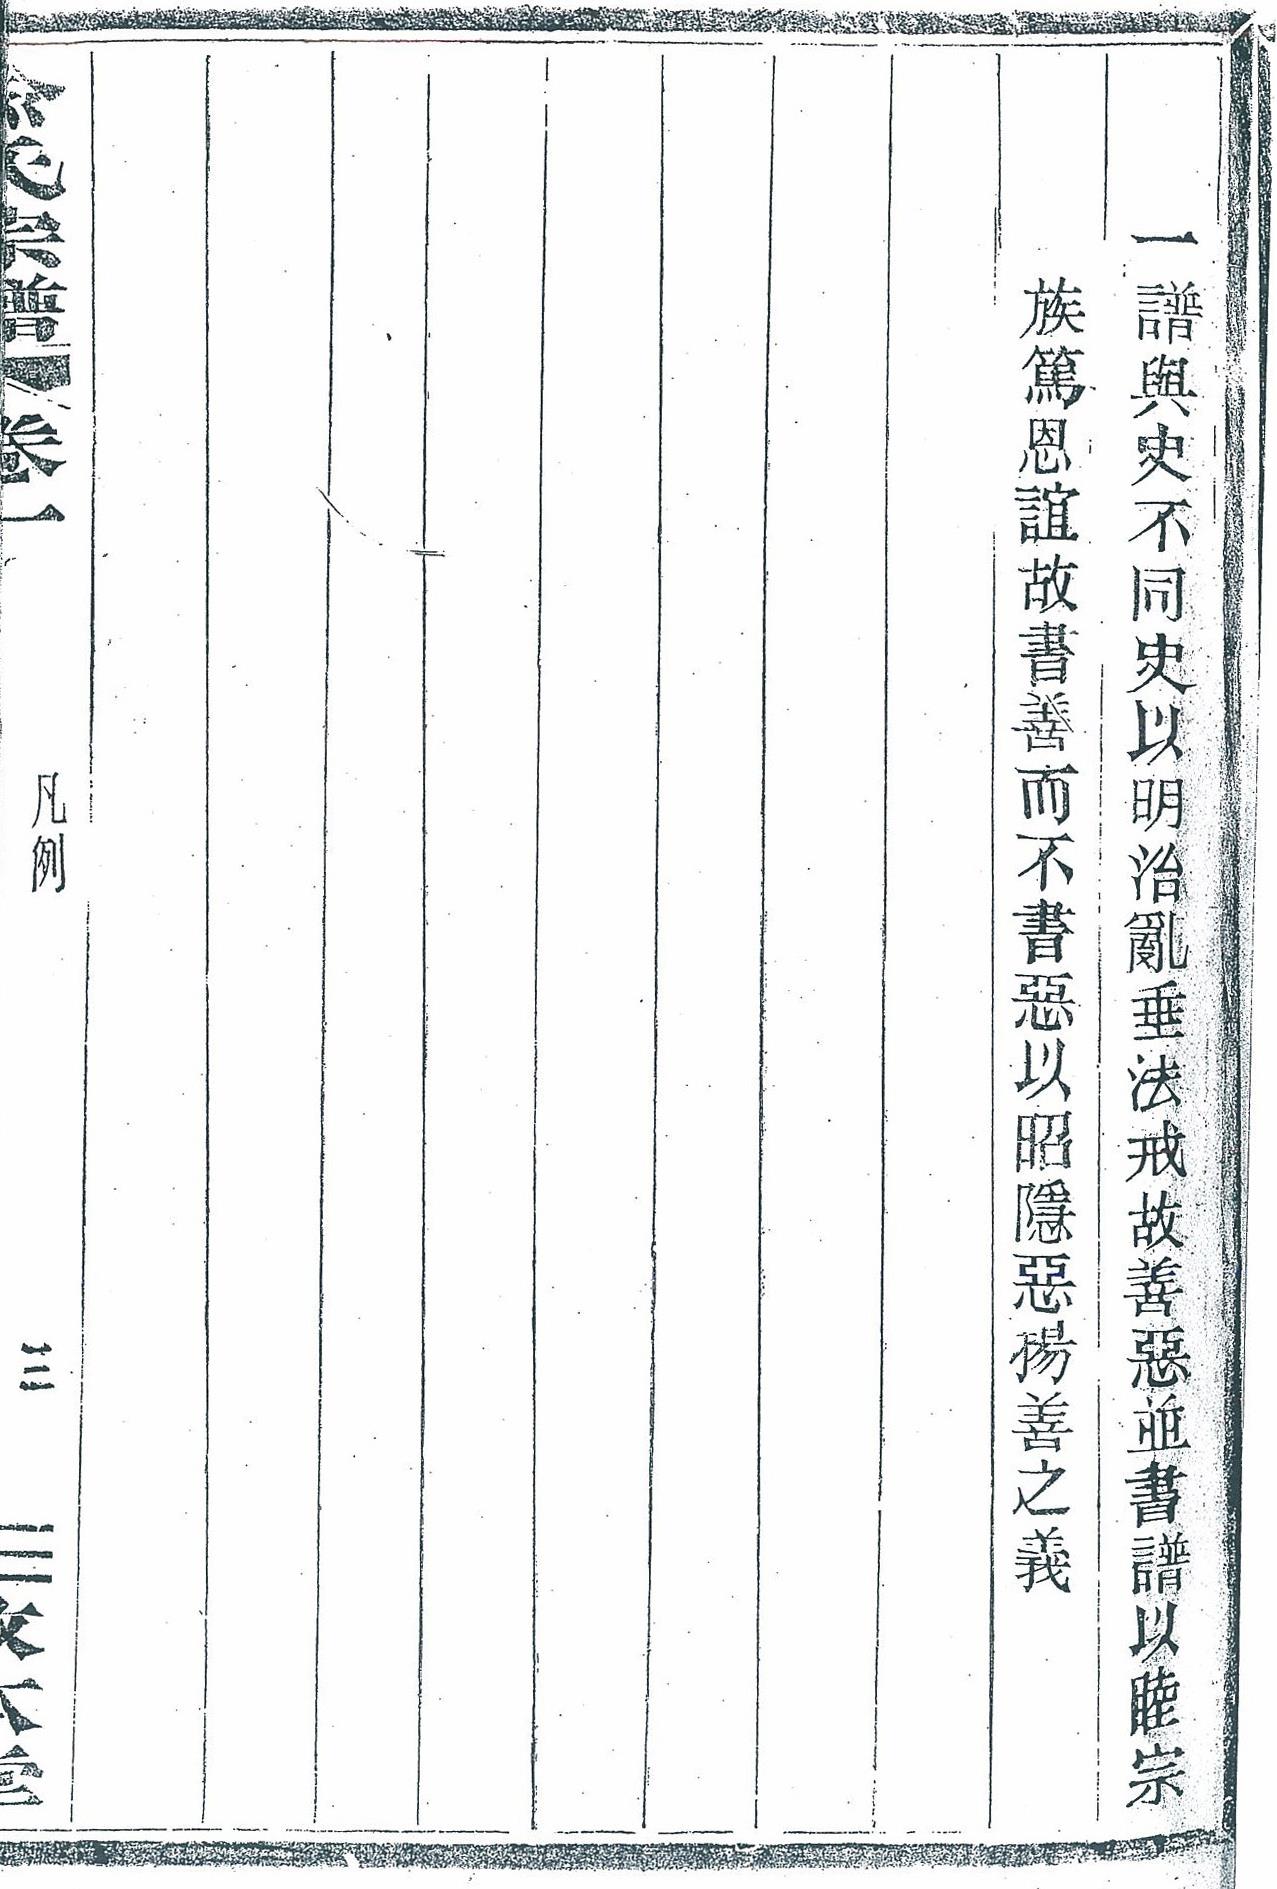 一譜與史不同史以明治亂垂法戒故善惡並書譜以睦宗
族篤恩誼故書善而不書惡以昭隱惡揚善之義
氏宗譜 卷一
凡例
三